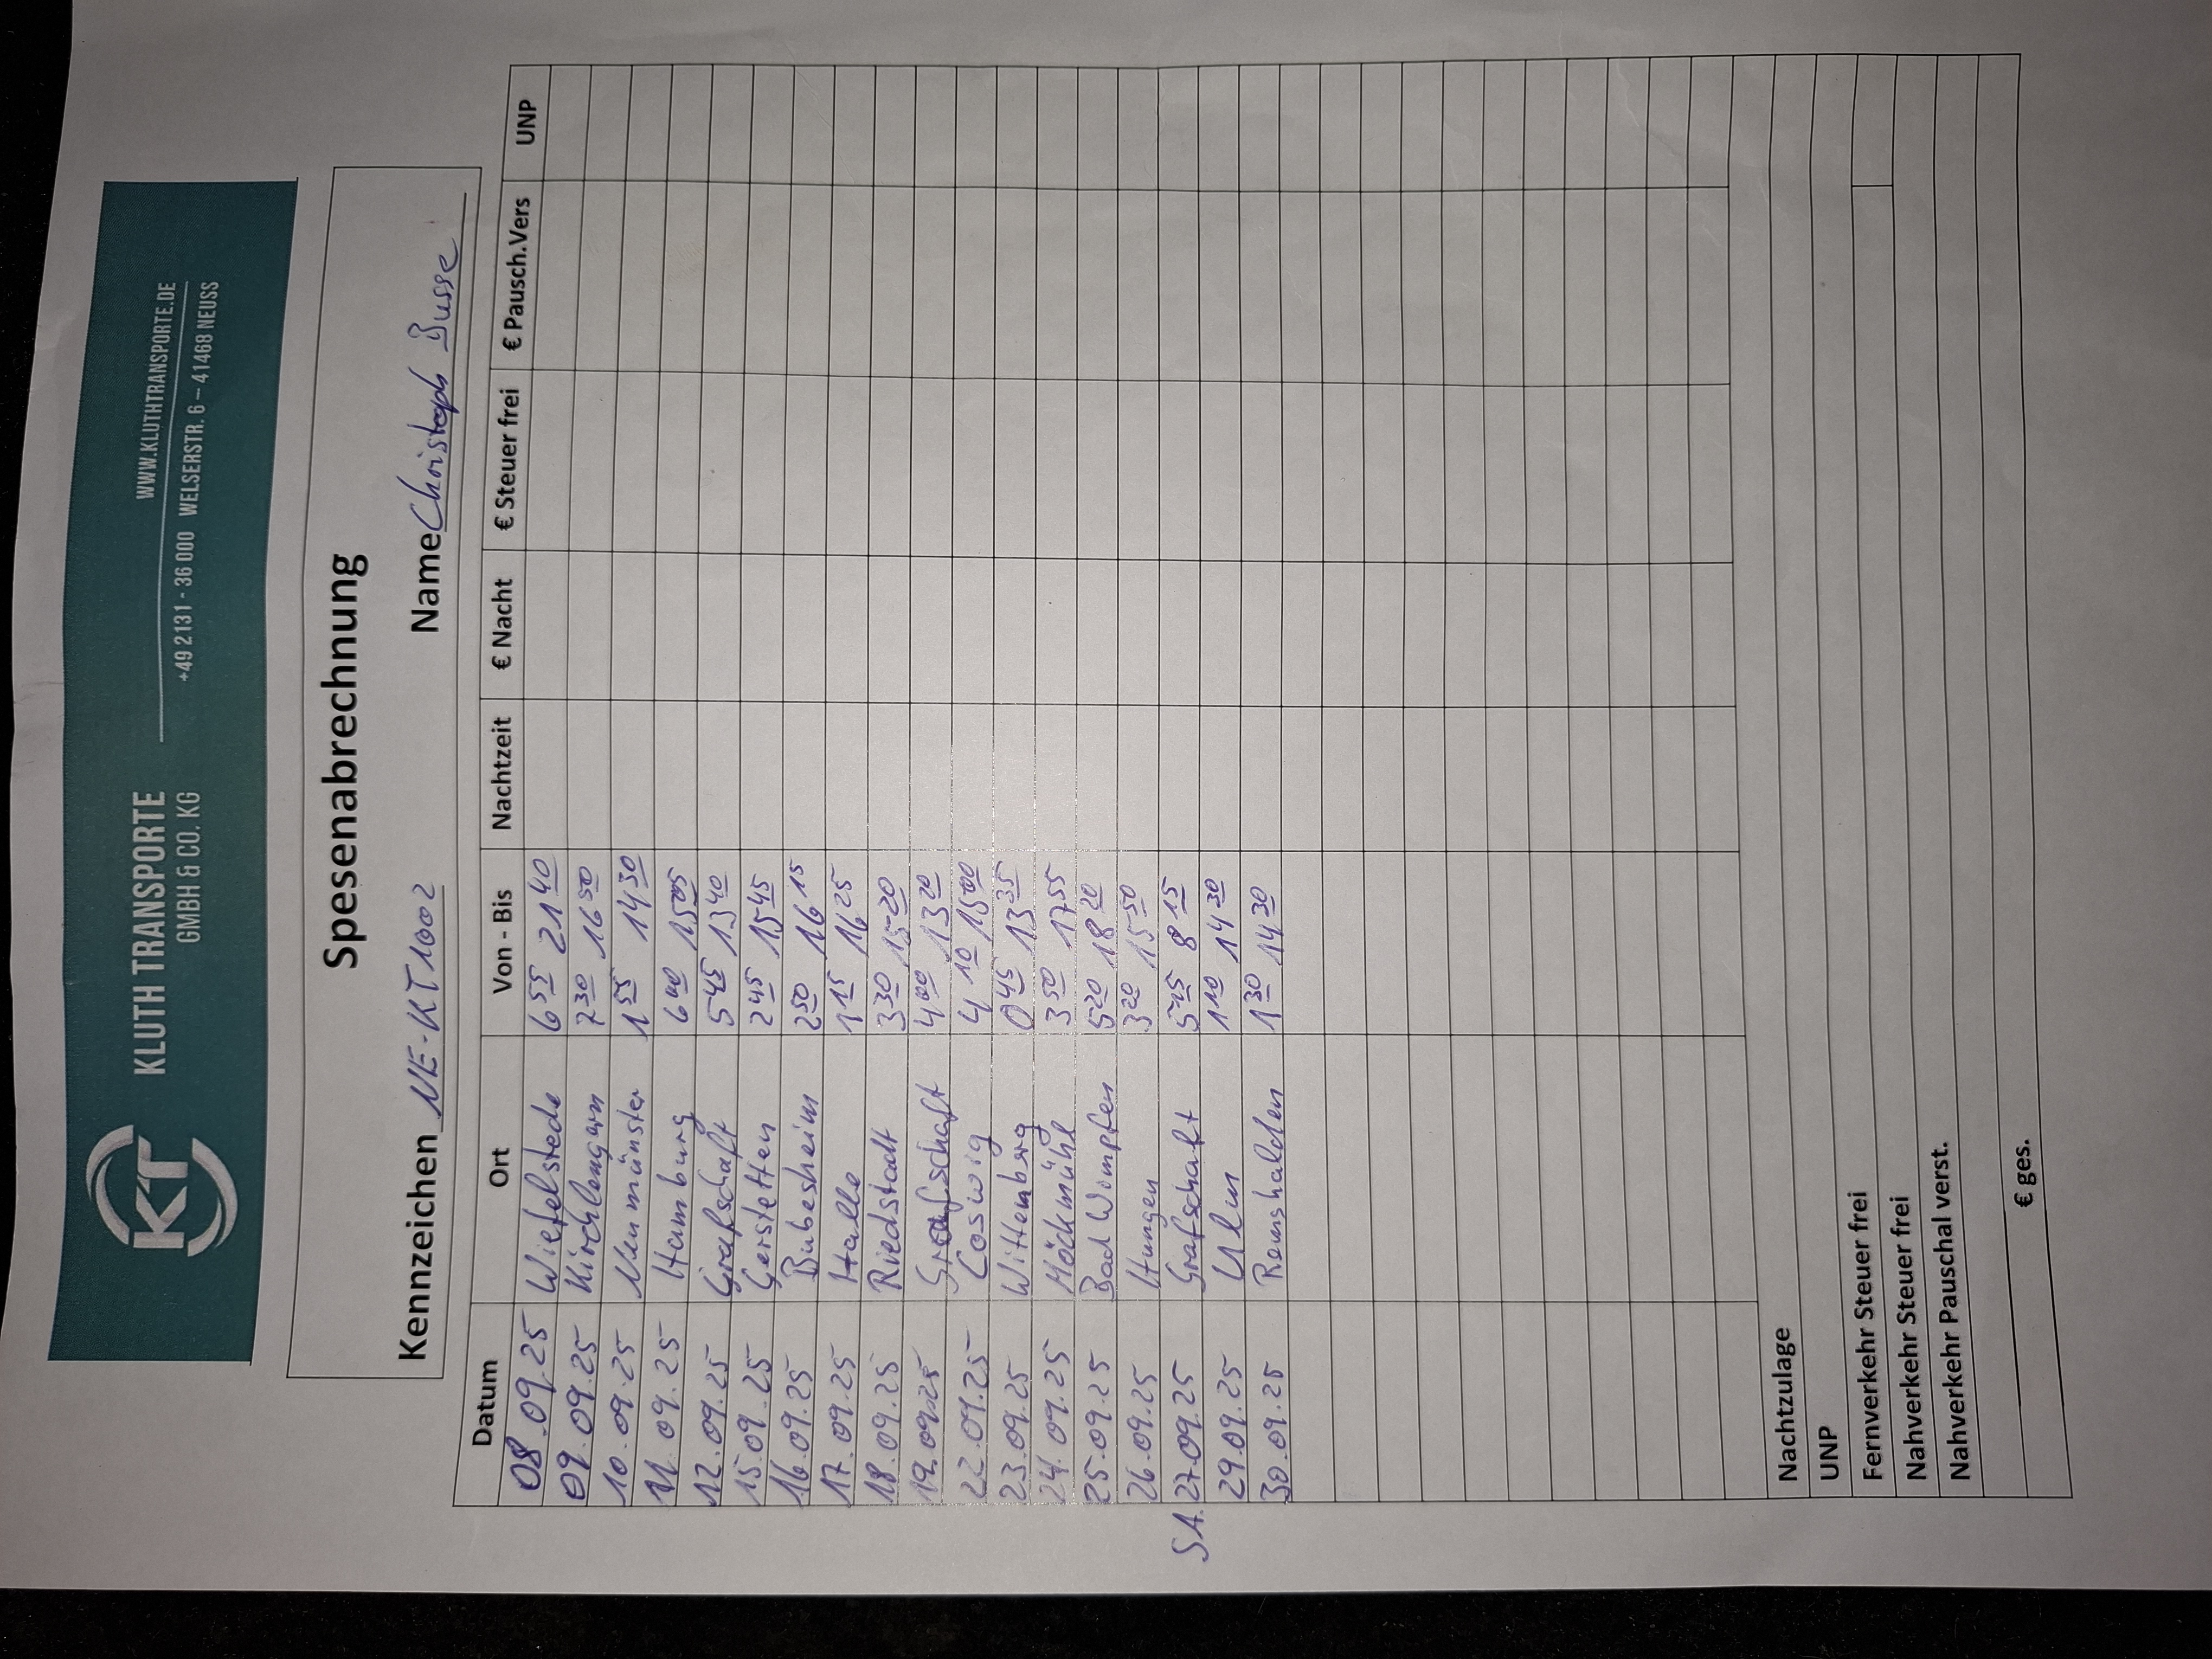 KT KLUTH TRANSPORTE
GMBH & CO. KG
WWW.KLUTHTRANSPORTE.DE
+49 2131 - 36 000 WELSERSTR. 6 – 41468 NEUSS
Spesenabrechnung
Kennzeichen NE-KT1002 Name Christoph Busse
Datum Ort Von - Bis Nachtzeit € Nacht € Steuer frei € Pausch.Vers UNP
08.09.25 Wiefelstede 6 55 21 40
09.09.25 Kirchlengern 7 30 16 50
10.09.25 Neumünster 1 55 14 30
11.09.25 Hamburg 6 40 15 05
12.09.25 Grafschaft 5 45 13 40
15.09.25 Gerstetten 2 45 15 45
16.09.25 Bubesheim 2 50 16 15
17.09.25 Halle 1 15 16 25
18.09.25 Riedstadt 3 30 15 20
19.09.25 Grafschaft 4 00 13 20
22.09.25 Coswig 4 10 15 00
23.09.25 Wittemberg 0 45 13 35
24.09.25 Möckmühl 3 50 17 55
25.09.25 Bad Wimpfen 5 20 18 20
26.09.25 Hungen 3 20 15 50
SA. 27.09.25 Grafschaft 5 15 8 15
29.09.25 Ulm 1 10 14 30
30.09.25 Remshalden 1 30 14 30
Nachtzulage
UNP
Fernverkehr Steuer frei
Nahverkehr Steuer frei
Nahverkehr Pauschal verst.
€ ges.